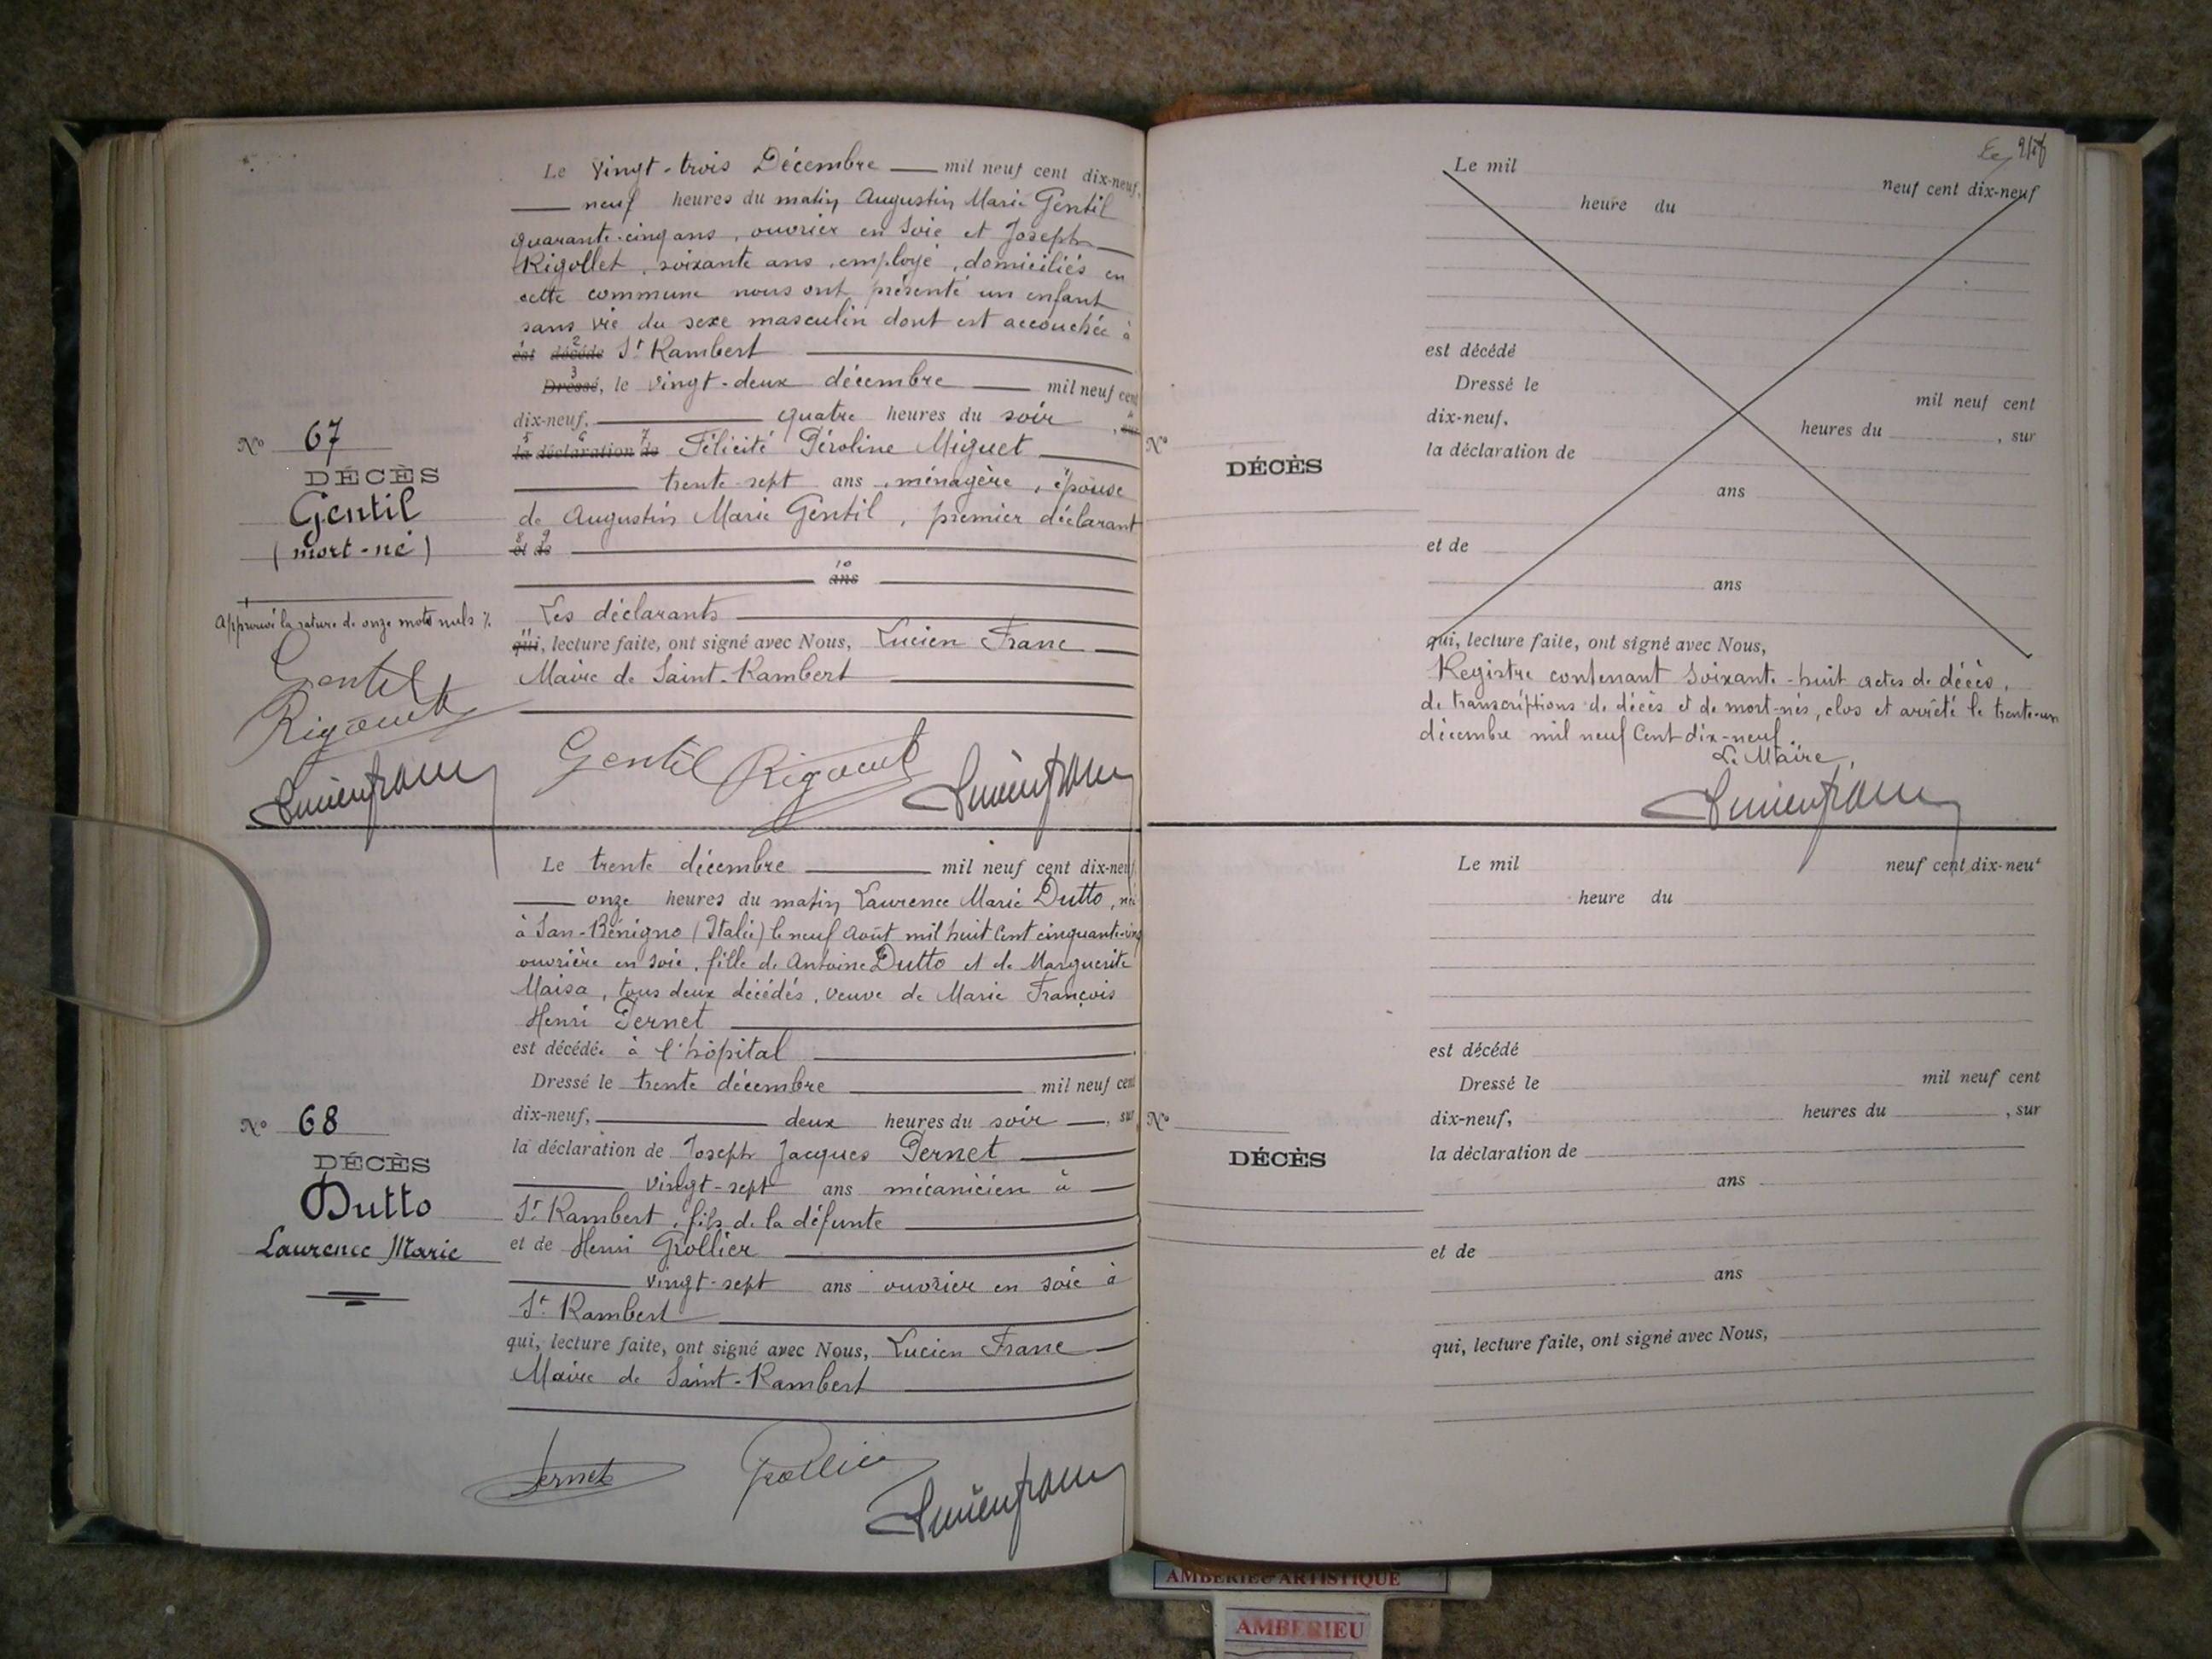 Le vingt-trois Décembre mil neuf cent dix-neuf,
neuf heures du matin Augustin Marie Gentil
quarante-cinq ans, ouvrier en soie et Joseph
Rigollet, soixante ans, employé, domiciliés en
cette commune nous ont présenté un enfant
sans vie du sexe masculin dont est accouchée à
est décédé St Rambert
2
Dressé, le vingt-deux décembre mil neuf cent
3
dix-neuf, quatre heures du soir, sur
la déclaration de Félicité Péroline Miguet
5 6 7
trente-sept ans, ménagère, épouse
de Augustin Marie Gentil, premier déclarant
et de
8 9
ans
10
Les déclarants
qui, lecture faite, ont signé avec Nous, Lucien Franc
11
Maire de Saint-Rambert
Gentil
No 67
DÉCÈS
Gentil
(mort-né)
Approuvé la rature de onze mots nuls
Gentil
Le trente décembre mil neuf cent dix-neuf
onze heures du matin Laurence Marie Dutto, née
à San-Bénigno (Italie) le neuf août mil huit cent cinquante-cinq
ouvrière en soie, fille de Antoine Dutto et de Marguerite
Maisa, tous deux décédés, veuve de Marie François
Henri Pernet
est décédée à l'hôpital
Dressé le trente décembre mil neuf cent
dix-neuf, deux heures du soir, sur
la déclaration de Joseph Jacques Pernet
vingt-sept ans mécanicien à
St Rambert, fils de la défunte
et de Henri Grollier
vingt-sept ans ouvrier en soie à
St Rambert
qui, lecture faite, ont signé avec Nous, Lucien Franc
Maire de Saint-Rambert
Pernet Grollier
No 68
DÉCÈS
Dutto
Laurence Marie
Le mil neuf cent dix-neuf
heure du
est décédé
Dressé le mil neuf cent
dix-neuf, heures du , sur
la déclaration de
ans
et de
ans
qui, lecture faite, ont signé avec Nous,
Registre contenant soixante-huit actes de décès,
de transcriptions de décès et de mort-nés, clos et arrêté le trente-un
décembre mil neuf cent dix-neuf.
Le Maire,
No
DÉCÈS
Le mil neuf cent dix-neuf
heure du
est décédé
Dressé le mil neuf cent
dix-neuf, heures du , sur
la déclaration de
ans
et de
ans
qui, lecture faite, ont signé avec Nous,
No
DÉCÈS
AMBERIEU ARTISTIQUE
AMBERIEU